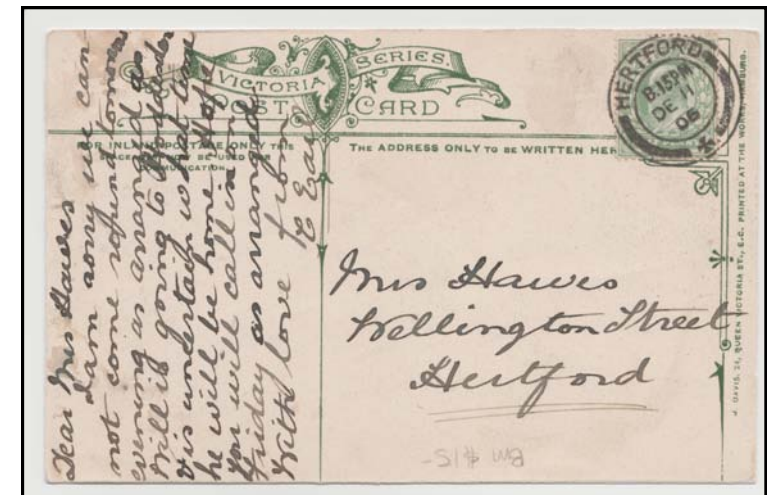 VICTORIA SERIES.
POST CARD
FOR INLAND POSTAGE ONLY THIS
SPACE MAY BE USED FOR
COMMUNICATION.
THE ADDRESS ONLY TO BE WRITTEN HERE
HERTFORD
8.15PM
DE 11
06
Dear Mrs Hawes
I am sorry we can
not come round tomorrow
evening as arranged as
Will is going to
& is uncertain what time
he will be home. Hope
you will call in on
Friday as arranged
With love from
Mrs Hawes
Wellington Street
Hertford
J. DAVIS, 24, QUEEN VICTORIA ST., E.C. PRINTED AT THE WORKS, HAMBURG.
BW $15-